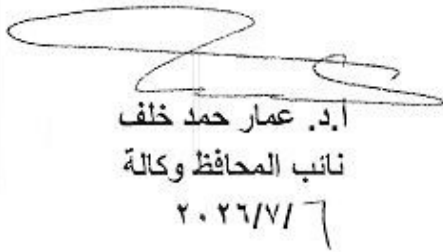 أ.د. عمار حمد خلف
نائب المحافظ وكالة
٢٠٢٦/٧/٦